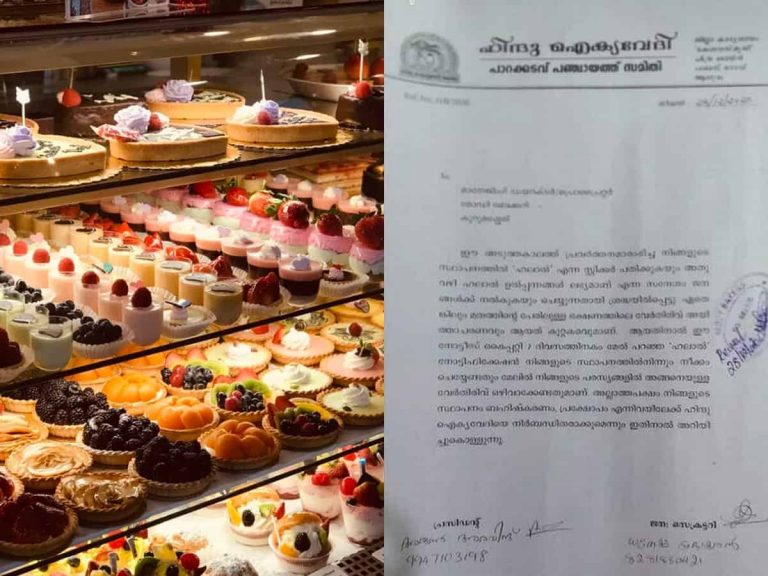 ഹിന്ദു ഐക്യവേദി
പാറക്കടവ് പഞ്ചായത്ത് സമിതി
To
മാനേജിംഗ് ഡയറക്ടർ/പ്രൊപ്രൈറ്റർ
മോഡി ബേക്കറി
കുറുമശ്ശേരി
ഈ അടുത്തകാലത്ത് പ്രവർത്തനമാരംഭിച്ച നിങ്ങളുടെ
സ്ഥാപനത്തിൽ 'ഹലാൽ' എന്ന സ്റ്റിക്കർ പതിക്കുകയും അതു
വഴി ഹലാൽ ഉൽപ്പന്നങ്ങൾ ലഭ്യമാണ് എന്ന സന്ദേശം ജന
ങ്ങൾക്ക് നൽകുകയും ചെയ്യുന്നതായി ശ്രദ്ധയിൽപ്പെട്ടു. ഏതെ
ങ്കിലും മതത്തിന്റെ പേരിലുള്ള ഭക്ഷണത്തിലെ വേർതിരിവ് അയി
ത്താചരണവും ആയത് കുറ്റകരവുമാണ്. ആയതിനാൽ ഈ
നോട്ടീസ് കൈപ്പറ്റി 7 ദിവസത്തിനകം മേൽ പറഞ്ഞ 'ഹലാൽ'
നോട്ടിഫിക്കേഷൻ നിങ്ങളുടെ സ്ഥാപനത്തിൽനിന്നും നീക്കം
ചെയ്യേണ്ടതും മേലിൽ നിങ്ങളുടെ പരസ്യങ്ങളിൽ അങ്ങനെയുള്ള
വേർതിരിവ് ഒഴിവാക്കേണ്ടതുമാണ്. അല്ലാത്തപക്ഷം നിങ്ങളുടെ
സ്ഥാപനം ബഹിഷ്കരണം, പ്രക്ഷോപം എന്നിവയിലേക്ക് ഹിന്ദു
ഐക്യവേദിയെ നിർബന്ധിതരാക്കുമെന്നും ഇതിനാൽ അറിയി
ച്ചുകൊള്ളുന്നു.
പ്രസിഡന്റ് ജന: സെക്രട്ടറി
9947103198